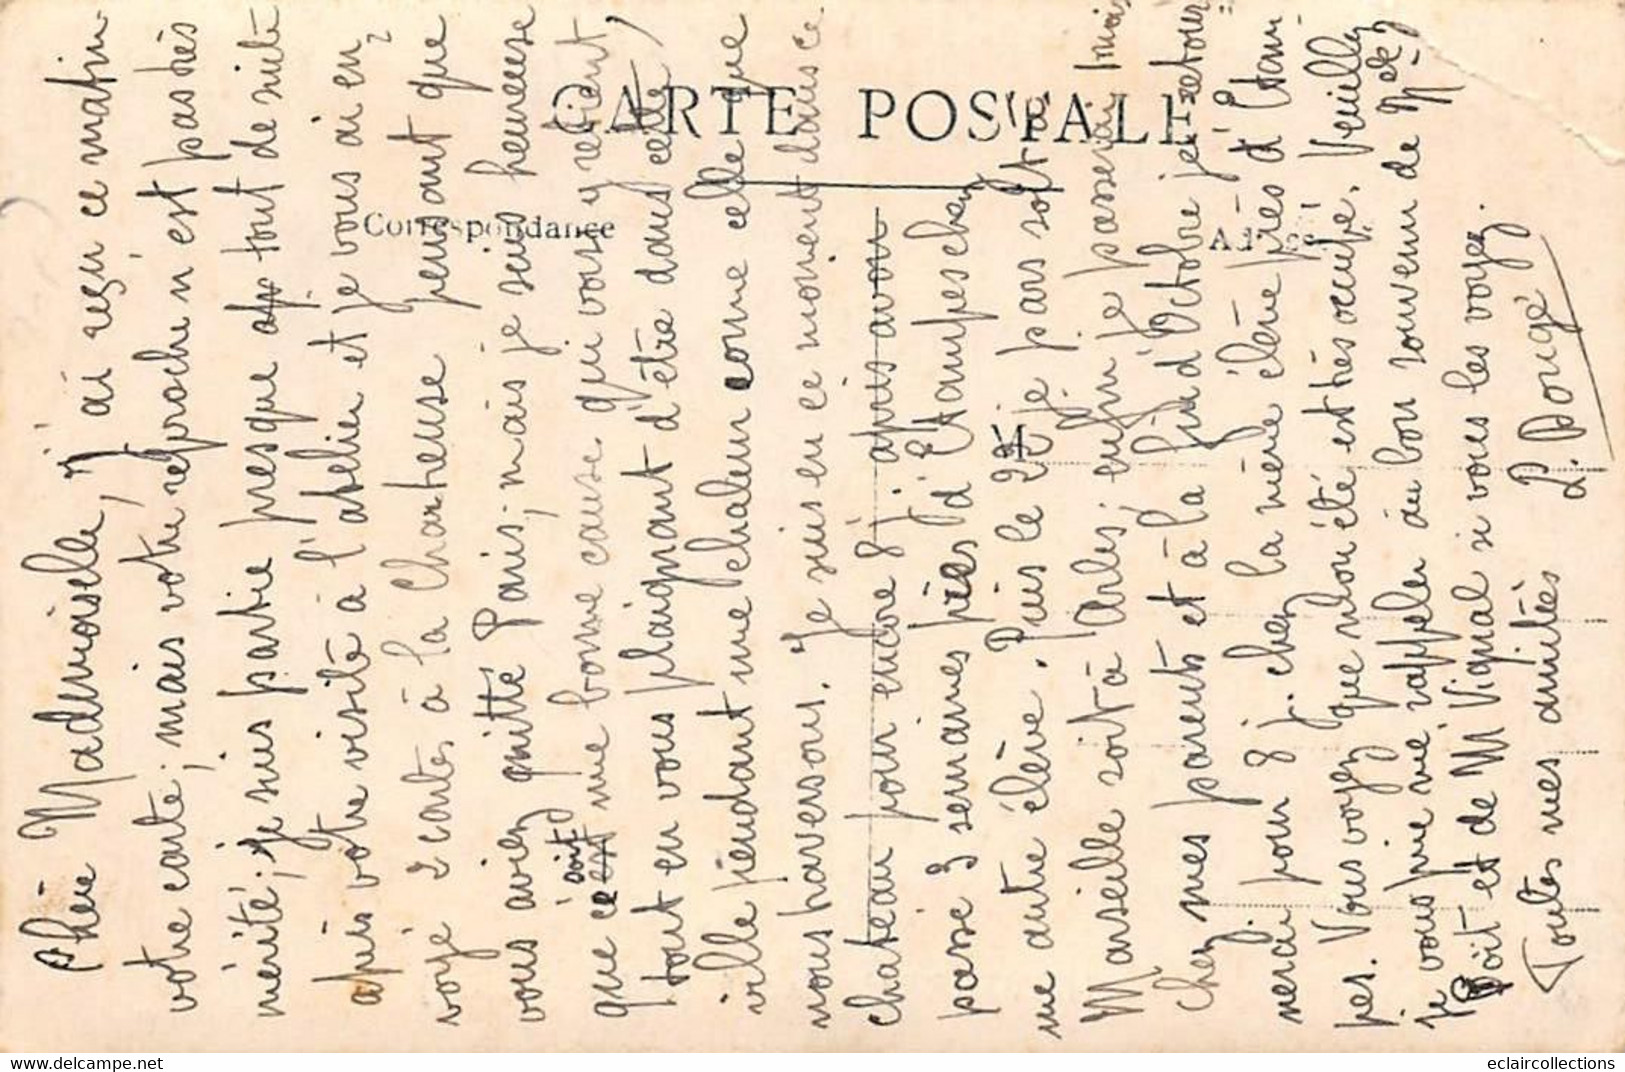 CARTE POSTALE
Correspondance
Adresse
M
Chère Mademoiselle, j'ai reçu ce matin
votre carte; mais votre reproche n'est pas très
mérité; je suis partie presque ap tout de suite
après votre visite à l'atelier et je vous ai en-
voyé 2 cartes à la Chartreuse pensant que
vous aviez quitté Paris; mais je suis heureuse
que ce est soit une bonne cause qui vous y retient
tout en vous plaignant d'être dans cette
ville pendant une chaleur come celle que
nous traversons. Je suis en ce moment dans ce
chateau pour encore 8 j. après avoir
passé 3 semaines près d'Etampes chez
une autre élève. Puis le 23 je pars soit à
Marseille soit à Arles; enfin je passerai 1 mois
chez mes parents et à la fin d'Octobre je retour-
nerai pour 8 j. chez la même élève près d'Etam-
pes. Vous voyez que mon été est très occupé. Veuillez
je vous prie me rappeler au bon souvenir de Melle
Poit et de M Vignal si vous les voyez.
Toutes mes amitiés L. Bougé
eclaircollections